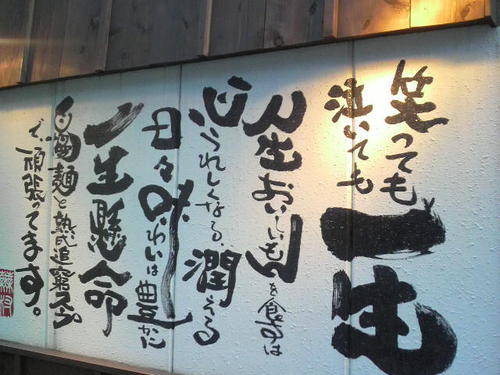 笑っても
泣いても
一生
人生おいしいもんを食す事は
心うれしくなる、潤える
日々味わいは豊かに
一生懸命
麺と熟成追窮
で、頑張ってます。